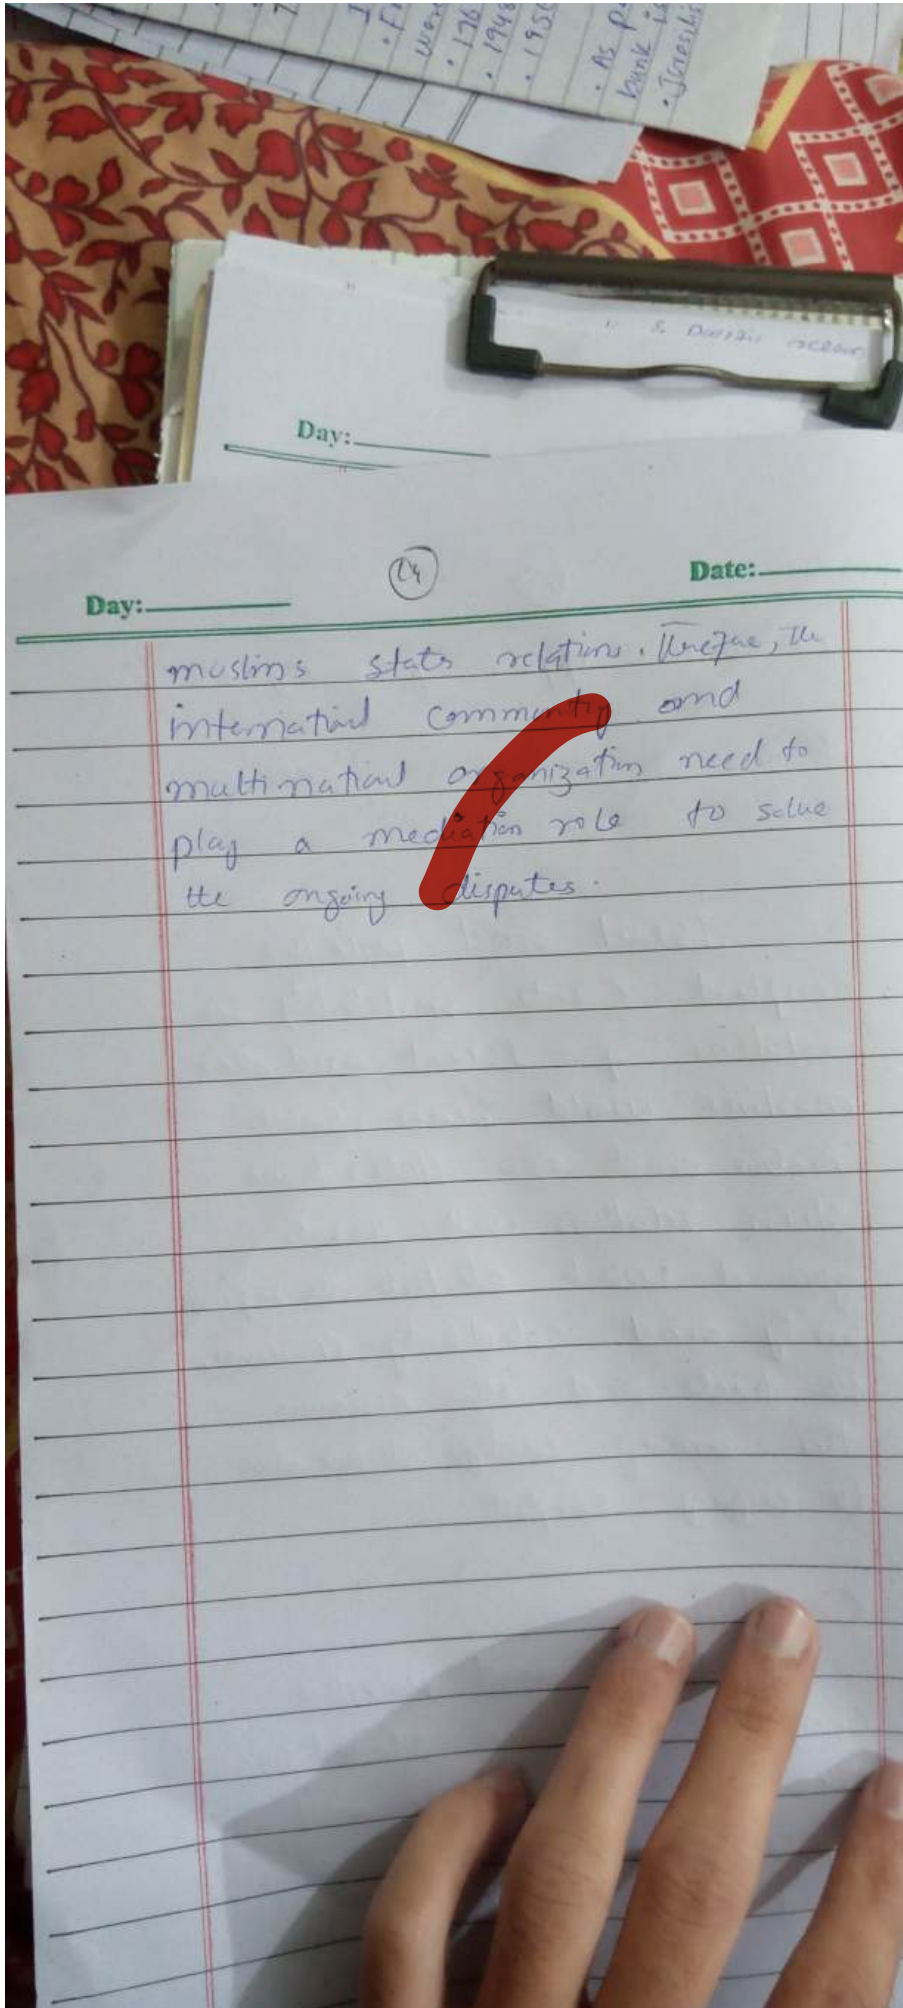 I
. 176
. 1948
. 195
. As p
bank is
Day:
24
Date:
Day:
muslims stats relations. Therefore, the
internatianl commenty and
multinational organization need to
play a mediation role to solve
the ongoing disputes.